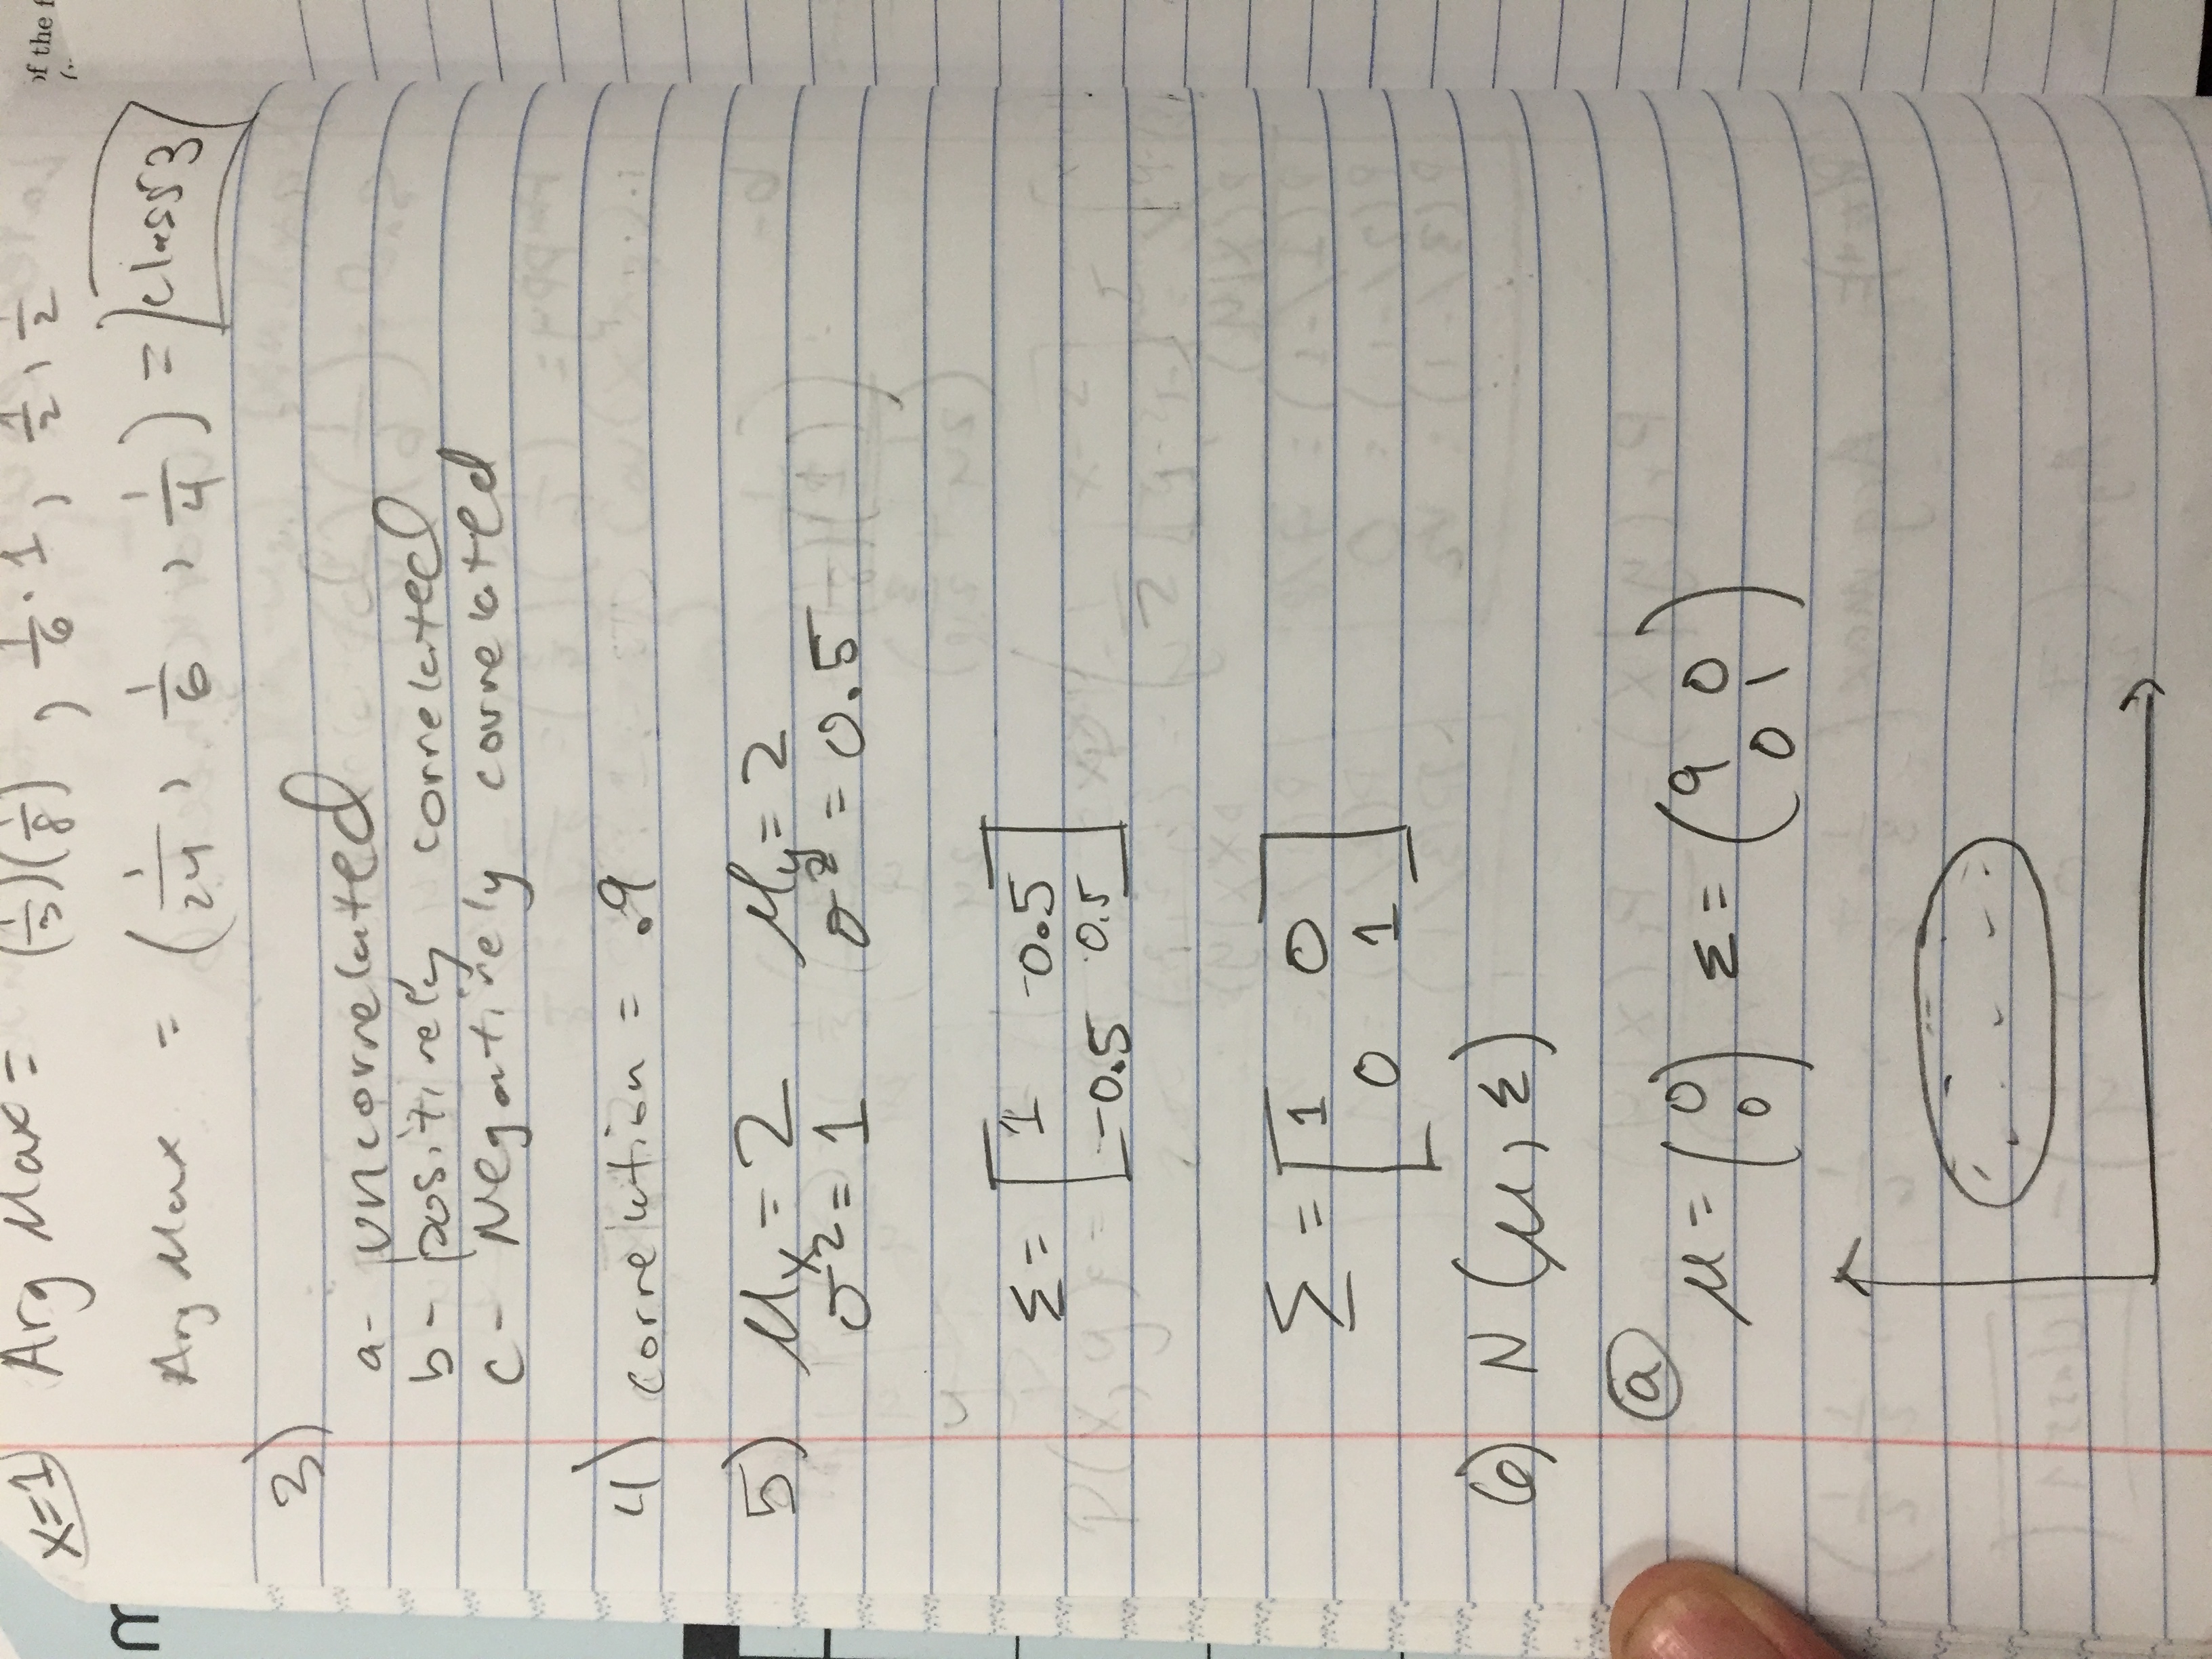 x=1) Arg Max = (1/3)(1/8) , 1/6 · 1 , 1/2 , 1/2
of the f
m
Arg Max = ( 1/24 , 1/6 , 1/4 ) = class 3
3)
a- uncorrelated
b- positively correlated
c- Negatively correlated
4) correlation = .9
5) μx = 2 μy = 2
σ² = 1 σ² = 0.5
Σ = [ 1 -0.5
-0.5 0.5 ]
Σ = [ 1 0
0 1 ]
6) N (μ, Σ)
a
μ = ( 0 Σ = ( 9 0
0 ) 0 1 )